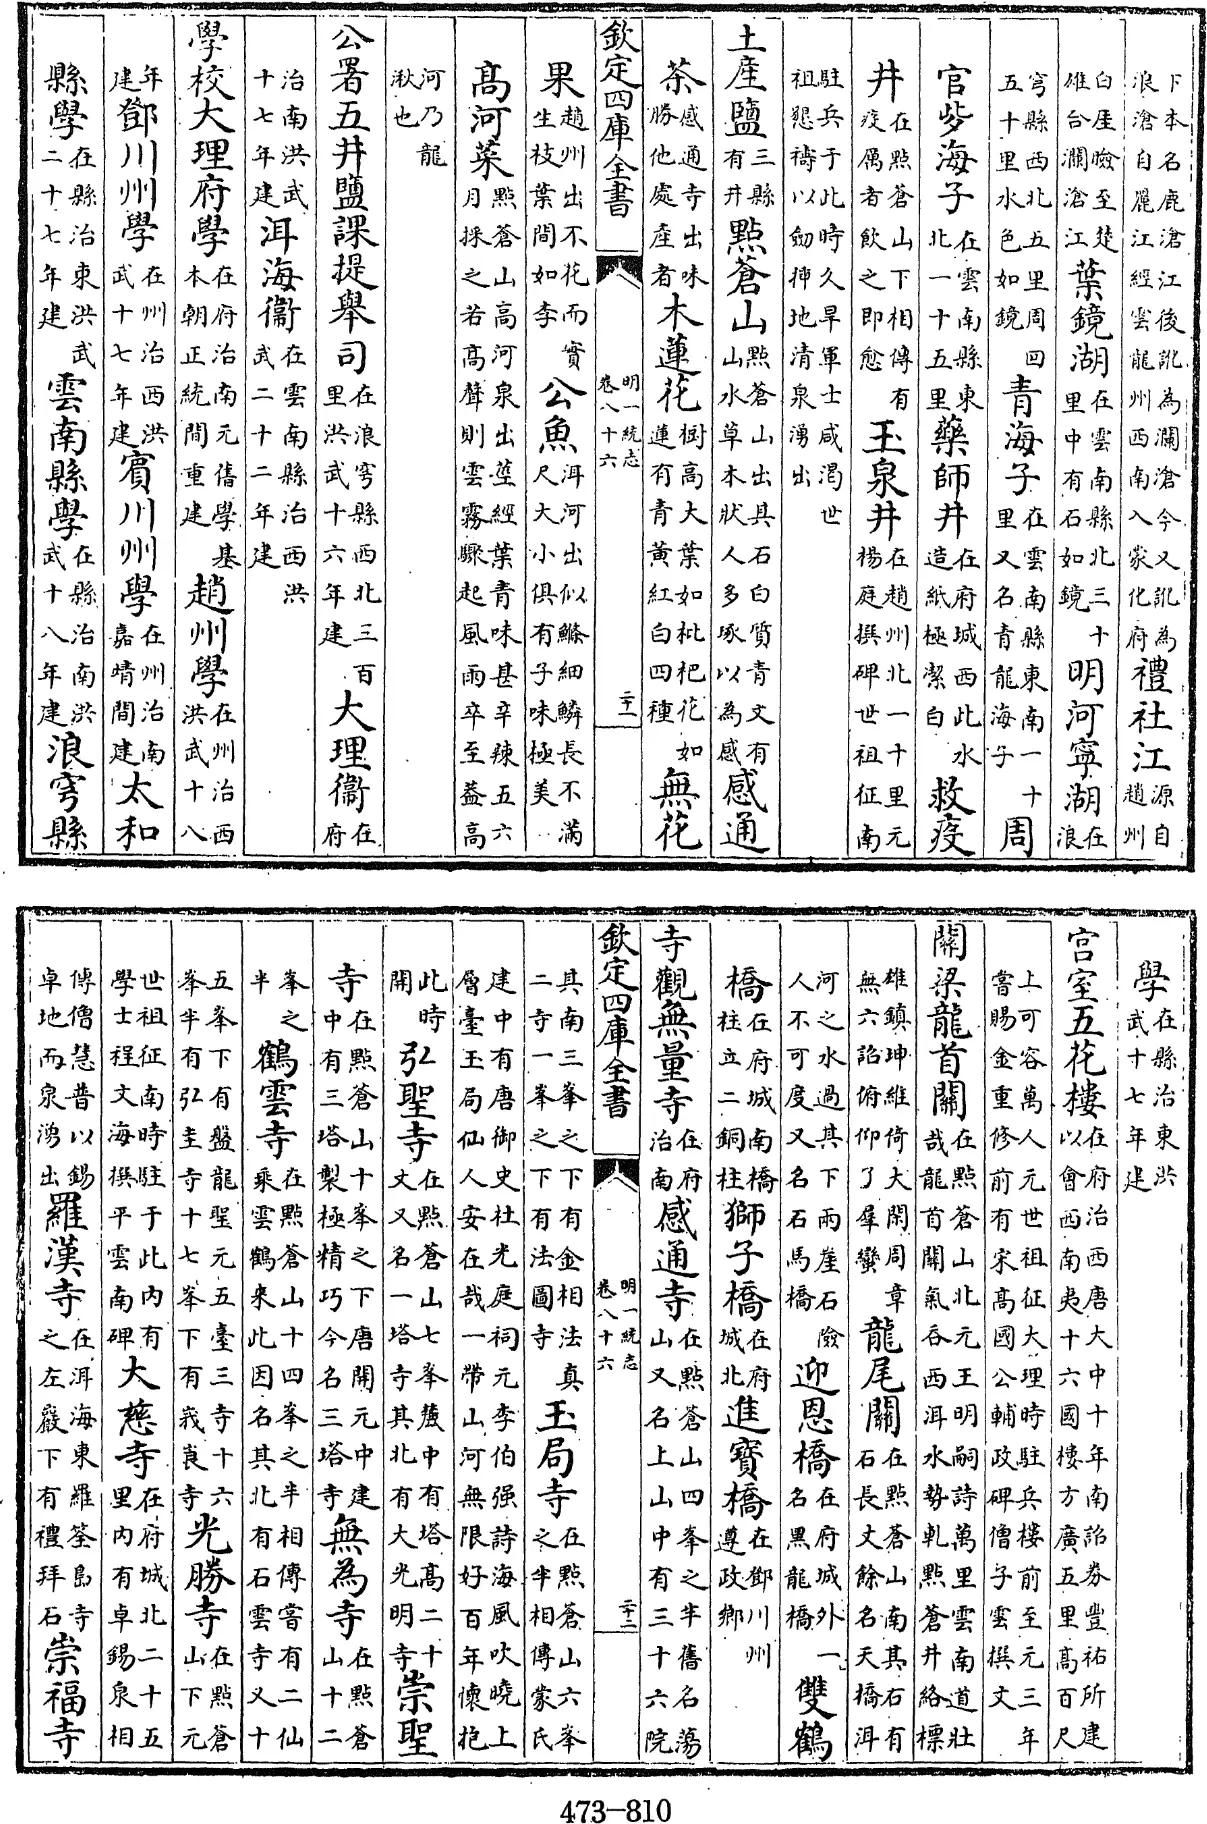 下本名鹿滄江後訛為瀾滄今又訛為浪滄自麗江經雲龍州西南入蒙化府禮社江源自趙州
白厓瞼至楚雄合瀾滄江葉鏡湖在雲南縣北三十里中有石如鏡明河寧湖在浪
穹縣西北五里周回五十里水色如鏡青海子在雲南縣東南一十里又名青龍海子周
官㱔海子在雲南縣東北一十五里藥師井在府城西此水造紙極潔白救疫
井在點蒼山下相傳有疫厲者飲之即愈玉泉井在趙州北一十里元楊庭撰碑世祖征南
駐兵于此時久旱軍士咸渴世祖懇禱以劒揷地清泉湧出
土產鹽三縣有井點蒼山點蒼山出具石白質青文有山水草木狀人多琢以為感感通
茶感通寺出味勝他處產者木蓮花樹高大葉如枇杷花如蓮有青黃紅白四種無花
欽定四庫全書 明一統志卷八十六 二十一
果趙州出不花而實生枝葉間如李公魚洱河出似鰷細鱗長不滿尺大小俱有子味極美
高河菜點蒼山高河泉出莖經葉青味甚辛辣五六月採之若高聲則雲霧驟起風雨卒至葢高
河乃龍湫也
公署五井鹽課提舉司在浪穹縣西北三百里洪武十六年建大理衞在府
治南洪武十七年建洱海衞在雲南縣治西洪武二十二年建
學校大理府學在府治南元舊學基本朝正統間重建趙州學在州治西洪武十八
年建鄧川州學在州治西洪武十七年建賓川州學在州治南嘉靖間建太和
縣學在縣治東洪武二十七年建雲南縣學在縣治南洪武十八年建浪穹縣
學在縣治東洪武十七年建
宮室五花樓在府治西唐大中十年南詔券豐祐所建以會西南夷十六國樓方廣五里高百尺
上可容萬人元世祖征大理時駐兵樓前至元三年嘗賜金重修前有宋高國公輔政碑僧子雲撰文
關梁龍首關在點蒼山北元王明嗣詩萬里雲南道壯哉龍首關氣吞西洱水勢軋點蒼井絡標
雄鎮坤維倚大閑周章無六詔俯仰了羣蠻龍尾關在點蒼山南其右有石長丈餘名天橋洱
河之水過其下兩崖石險人不可度又名石馬橋迎恩橋在府城外一名黑龍橋雙鶴
橋在府城南橋柱立二銅柱獅子橋在府城北進寶橋在鄧川州遵政鄉
寺觀無量寺在府治南感通寺在點蒼山四峯之半舊名蕩山又名上山中有三十六院
欽定四庫全書 明一統志卷八十六 二十二
其南三峯之下有金相法真二寺一峯之下有法圖寺玉局寺在點蒼山六峯之半相傳蒙氏
建中有唐御史杜光庭祠元李伯强詩海風吹曉上層臺玉局仙人安在哉一帶山河無限好百年懷抱
此時開弘聖寺在點蒼山七峯蘸中有塔高二十丈又名一塔寺其北有大光明寺崇聖
寺在點蒼山十峯之下唐開元中建中有三塔製極精巧今名三塔寺無為寺在點蒼山十二
峯之半鶴雲寺在點蒼山十四峯之半相傳嘗有二仙乘雲鶴來此因名其北有石雲寺又十
五峯下有盤龍聖元五臺三寺十六峯半有弘圭寺十七峯下有峩崀寺光勝寺在點蒼山下元
世祖征南時駐于此內有學士程文海撰平雲南碑大慈寺在府城北二十五里內有卓錫泉相
傳僧慧普以錫卓地而泉湧出羅漢寺在洱海東羅筌島寺之左巖下有禮拜石崇福寺
473-810